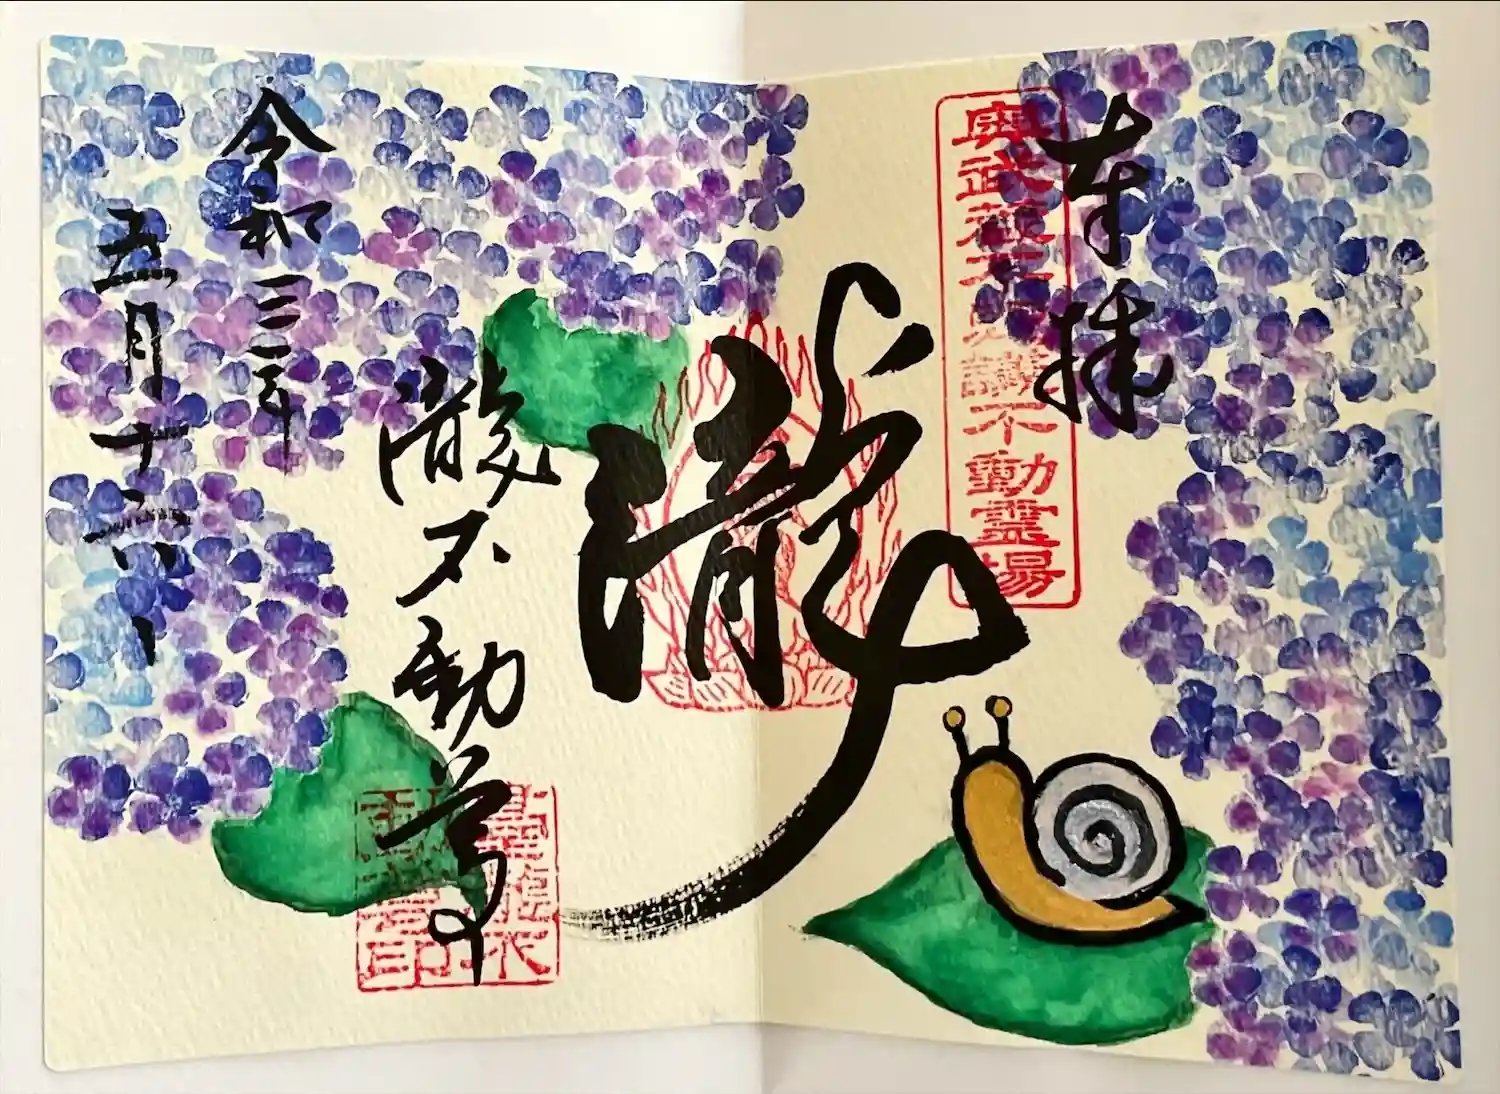 奉拝
奥武蔵不思議不動霊場
瀧
瀧不動尊
令和三年
五月十六日